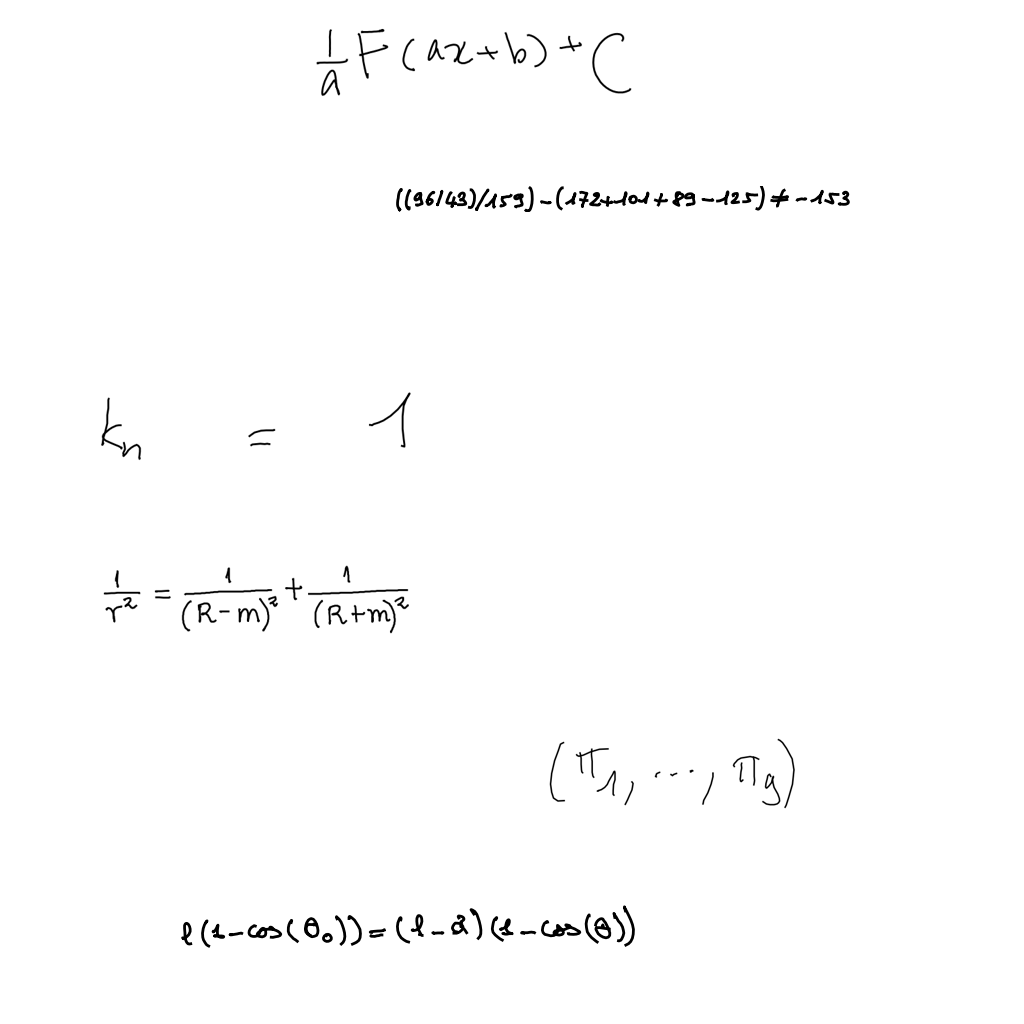 \frac{1}{a}F(ax+b)+C
((96/43)/159)-(172+101+89-125)≠-153
k_n = 1
\frac{1}{r^2}=\frac{1}{(R-m)^2}+\frac{1}{(R+m)^2}
(π_1, ..., π_g)
l(1-cos(θ_0))=(l-a)(1-cos(θ))